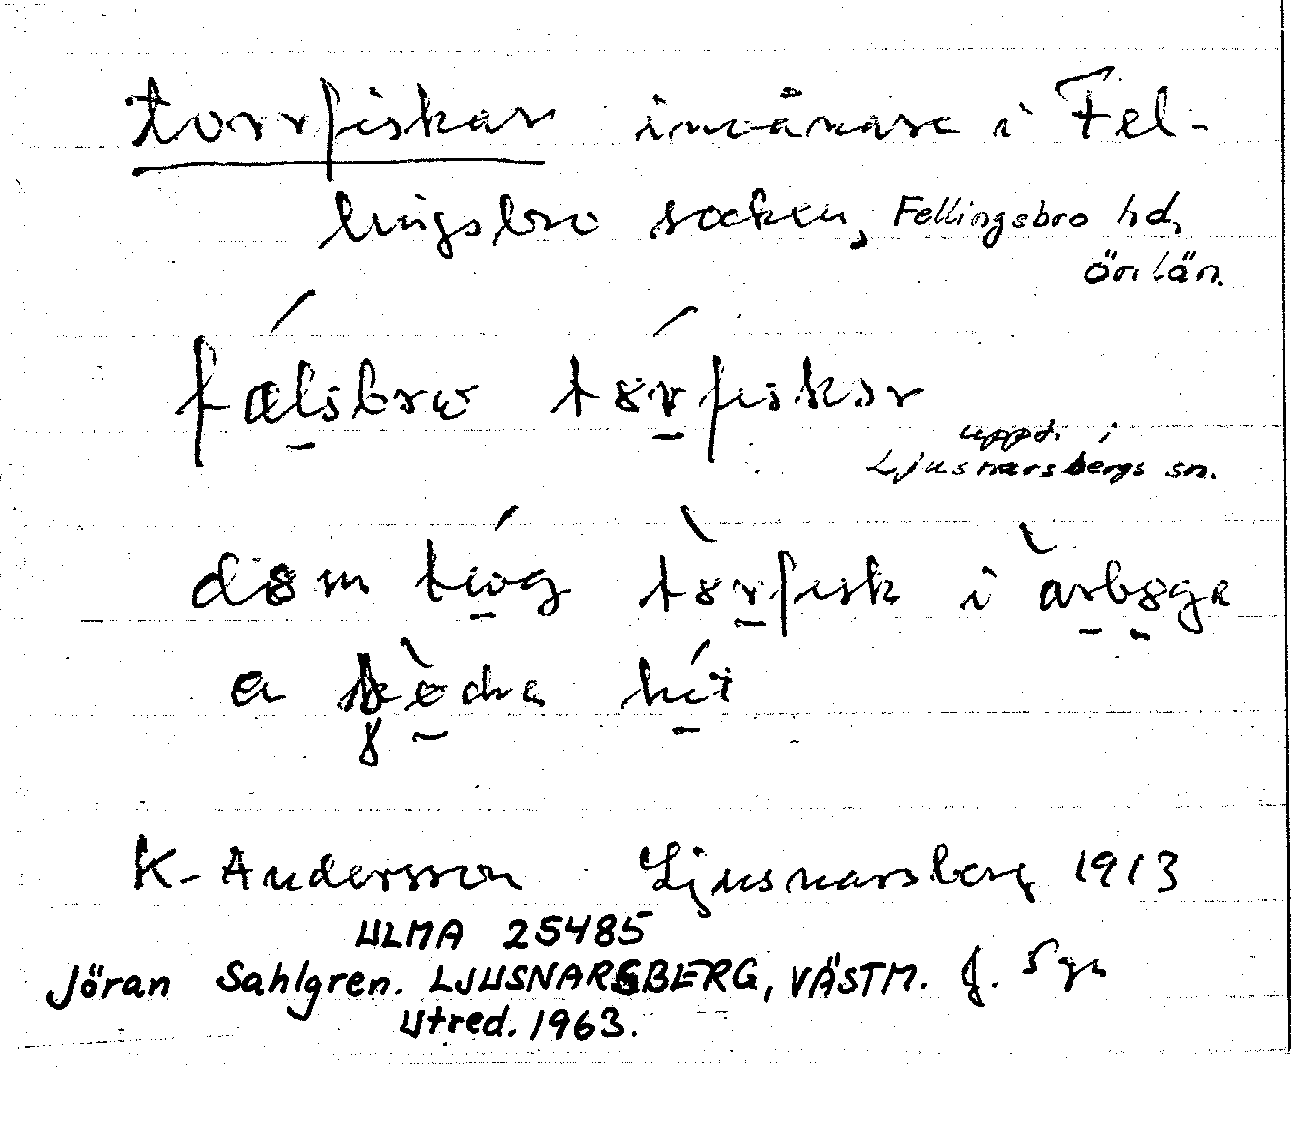 torrfiskar invånare i Fel-
lingsbro socken, Fellingsbro hd,
ör. län.
fælsbro tørfisker
uppt. i
Ljusnarsbergs sn.
tørfisk i arbøga
a hit
K. Andersson Ljusnarsberg 1913
ULMA 25485
Jöran Sahlgren. LJUSNARSBERG, VÄSTM. J. Sgn
Utred. 1963.